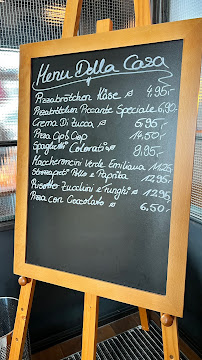 Menu Della Casa
Pizzabrötchen Käse 4.95,-
Pizzabrötchen Piccante Speciale 6.90,-
Crema Di Zucca 6.95,-
Pizza Cip Ciop 14.50,-
Spaghetti Colorati 8.95,-
Maccheroncini Verde Emiliana 11.25
Pollo e Paprika 12.95,-
Risotto Zucchini e Funghi 12.95,-
Pizza con Cioccolato 6.50,-